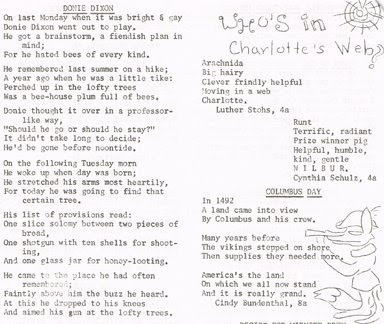 DONIE DIXON
On last Monday when it was bright & gay
Donie Dixon went out to play.
He got a brainstorm, a fiendish plan in
mind;
For he hated bees of every kind.
He remembered last summer on a hike;
A year ago when he was a little tike:
Perched up in the lofty trees
Was a bee-house plum full of bees.
Donie thought it over in a professor-
like way,
"Should he go or should he stay?"
It didn't take long to decide;
He'd be gone before noontide.
On the following Tuesday morn
He woke up when day was born;
He stretched his arms most heartily,
For today he was going to find that
certain tree.
His list of provisions read:
One slice solomy between two pieces of
bread,
One shotgun with ten shells for shoot-
ing,
And one glass jar for honey-looting.
He came to the place he had often
remembered;
Faintly above him the buzz he heard.
At this he dropped to his knees
And aimed his gun at the lofty trees.
Who's in
Charlotte's Web?
Arachnida
Big hairy
Clever frindly helpful
Moving in a web
Charlotte.
Luther Stohs, 4a
Runt
Terrific, radiant
Prize winner pig
Helpful, humble,
kind, gentle
W I L B U R.
Cynthia Schulz, 4a
COLUMBUS DAY
In 1492
A land came into view
By Columbus and his crew.
Many years before
The vikings stepped on shore
Then supplies they needed more.
America's the land
On which we all now stand
And it is really grand.
Cindy Bundenthal, 8a